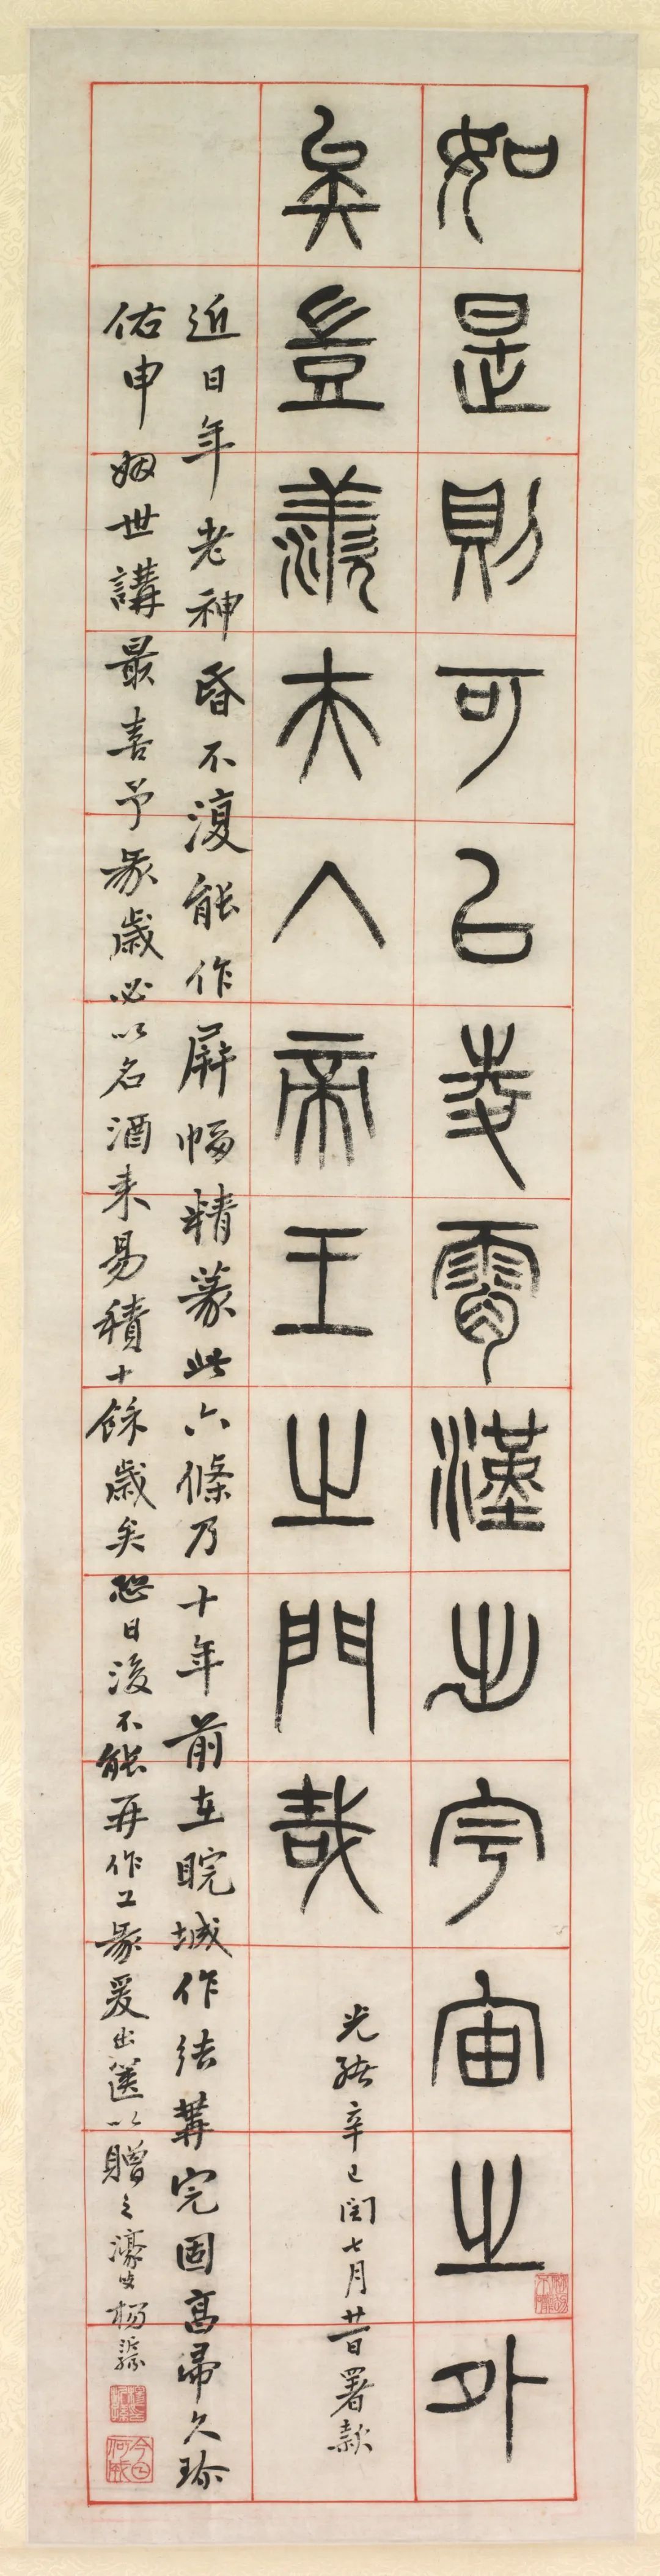 如是則可㠯夌霄漢出宇宙之外
矣豈羨夫入帝王之門哉
光緒辛巳閏七月廿日署款
近日年老神昏不復能作屏幅精篆此六條乃十年前在睆城作結冓完固高帚久瑜
佑申姻世講最喜予篆歲必以名酒來易積十餘歲矣恐日後不能再作工篆爰出篋以贈之濠叟楊沂孫